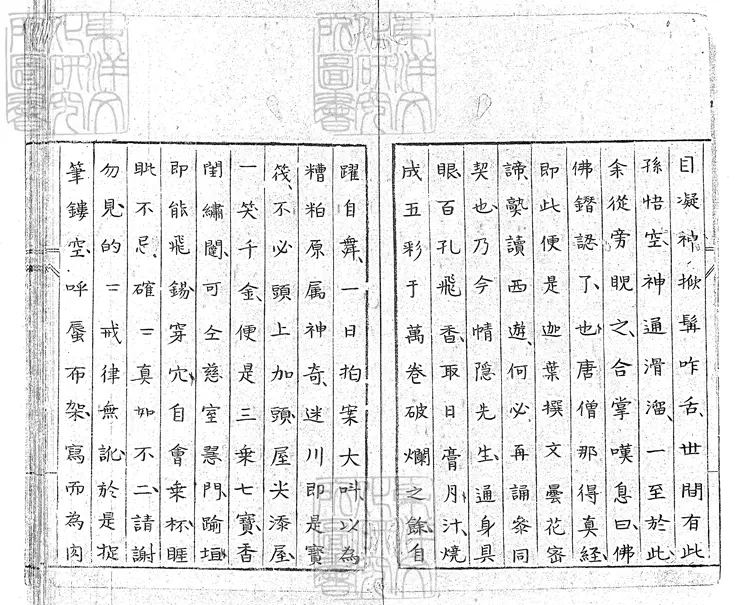 目凝神掀髯咋舌、世間有此
孫悟空、神通滑溜、一至於此、
余從旁睨之、合掌嘆息曰、佛
佛錯認了也、唐僧那得真經、
即此便是迦葉撰文曇花密
諦、奭讀西遊、何必再誦叅同
契也、乃今情隐先生、通身具
眼、百孔飛香、取日膏月汁、燒
成五彩于萬卷破爛之餘、自
躍自舞、一日拍案大呌、以為
糟粕原属神奇、迷川即是寳
筏、不必頭上加頭、屋尖添屋、
一笑千金、便是三乗七寳、香
閨繡闥、可仝慈室慧門、踰垣
即能飛錫、穿穴自會乗杯、睚
眦不忌、確〻真如不二、請謝
勿見、的〻戒律無訛、於是捉
筆鏤空、呼蜃布架、寫而為肉
東洋文化研究所圖書
東洋文化研究所圖書